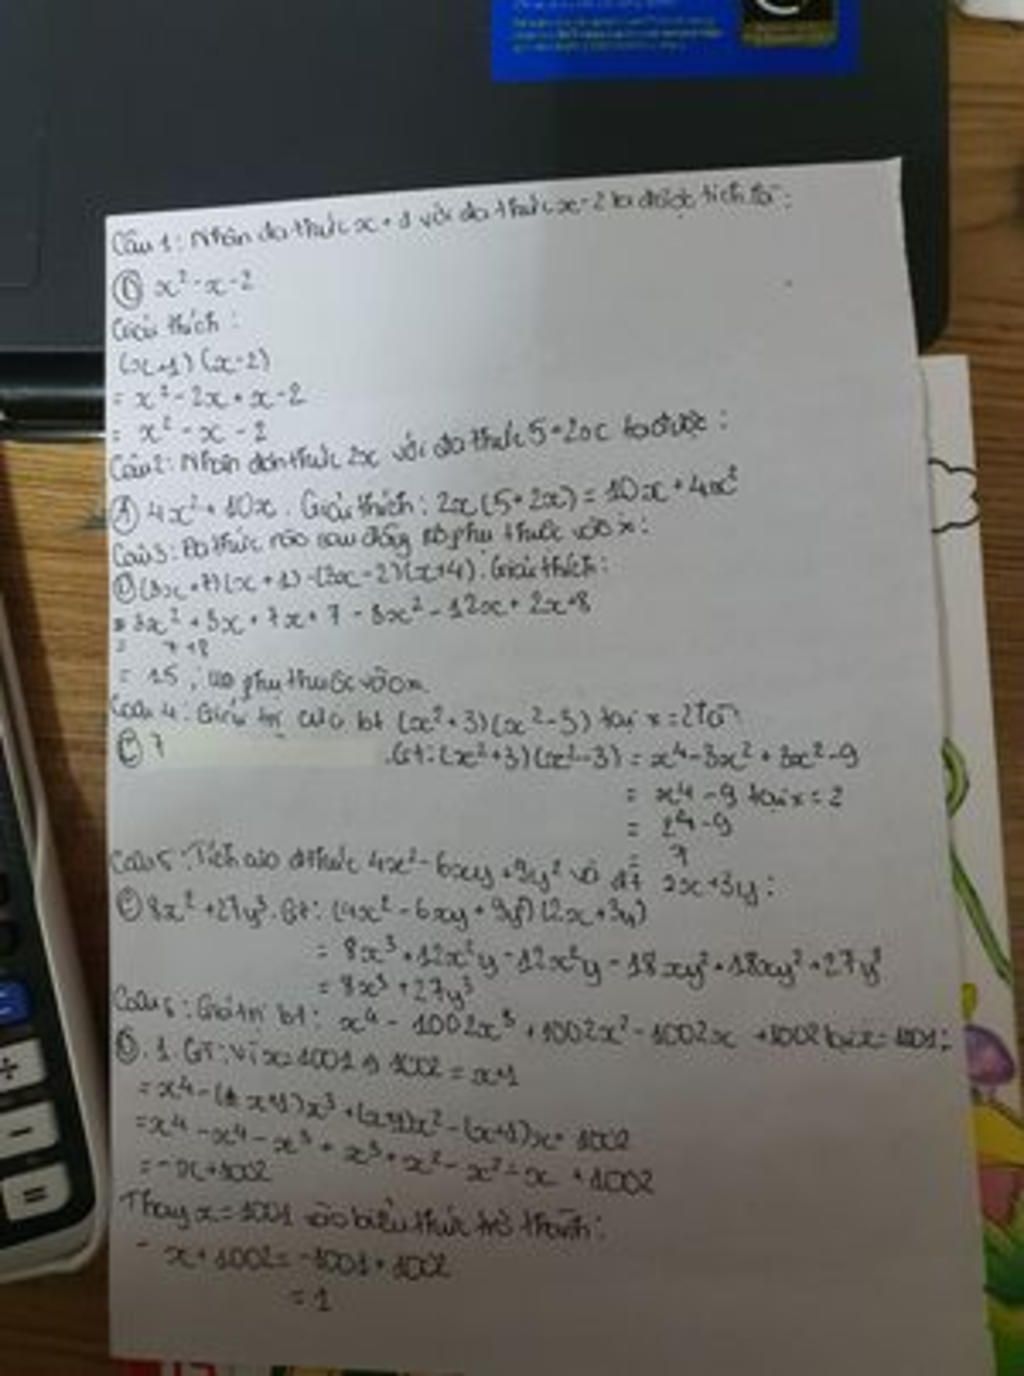 Câu 1: Nhân đa thức x + 1 với đa thức x - 2 ta được tích là:
x² - x - 2
Giải thích:
(x+1) (x-2)
= x² - 2x + x - 2
= x² - x - 2
Câu 2: Nhân đơn thức 2x với đa thức 5 + 2x ta được:
Ⓐ 4x² + 10x. Giải thích: 2x (5 + 2x) = 10x + 4x²
Câu 3: Đa thức nào sau đây ko phụ thuộc vào x:
(3x + 7)(x + 1) - (3x - 2)(x + 4). Giải thích:
= 3x² + 3x + 7x + 7 - 3x² - 12x + 2x + 8
= 7 + 8
= 15, ko phụ thuộc vào x.
Câu 4: Giá trị của bt (x² + 3) (x² - 3) tại x = 2 là
Ⓒ 7
.Gt: (x² + 3) (x² - 3) = x⁴ - 3x² + 3x² - 9
= x⁴ - 9 tại x = 2
= 2⁴ - 9
= 7
Câu 5: Tích của đthức 4x² - 6xy + 9y² và đt 2x + 3y:
Ⓒ 8x² + 27y³. Gt: (4x² - 6xy + 9y²) (2x + 3y)
= 8x³ + 12x²y - 12x²y - 18xy² + 18xy² + 27y³
= 8x³ + 27y³
Câu 6: Giá trị bt: x⁴ - 1002x³ + 1002x² - 1002x + 1002 tại x = 1001:
. 1. Gt: vì x = 1001 → 1002 = x+1
= x⁴ - (x+1)x³ + (x+1)x² - (x+1)x + 1002
= x⁴ - x⁴ - x³ + x³ + x² - x² - x + 1002
= - x + 1002
Thay x = 1001 vào biểu thức trở thành:
- x + 1002 = -1001 + 1002
= 1